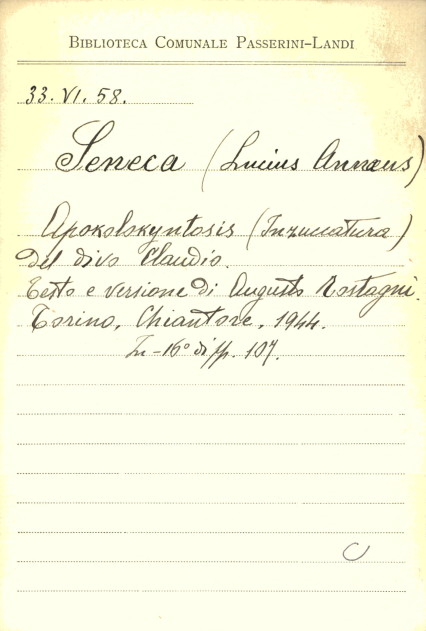 BIBLIOTECA COMUNALE PASSERINI-LANDI
33. VI. 58.
Seneca (Lucius Annæus)
Apokolokyntosis (Inzuccatura)
del divo Claudio.
Testo e versione di Augusto Rostagni.
Torino, Chiantore, 1944.
In-16° di pp. 107.
C